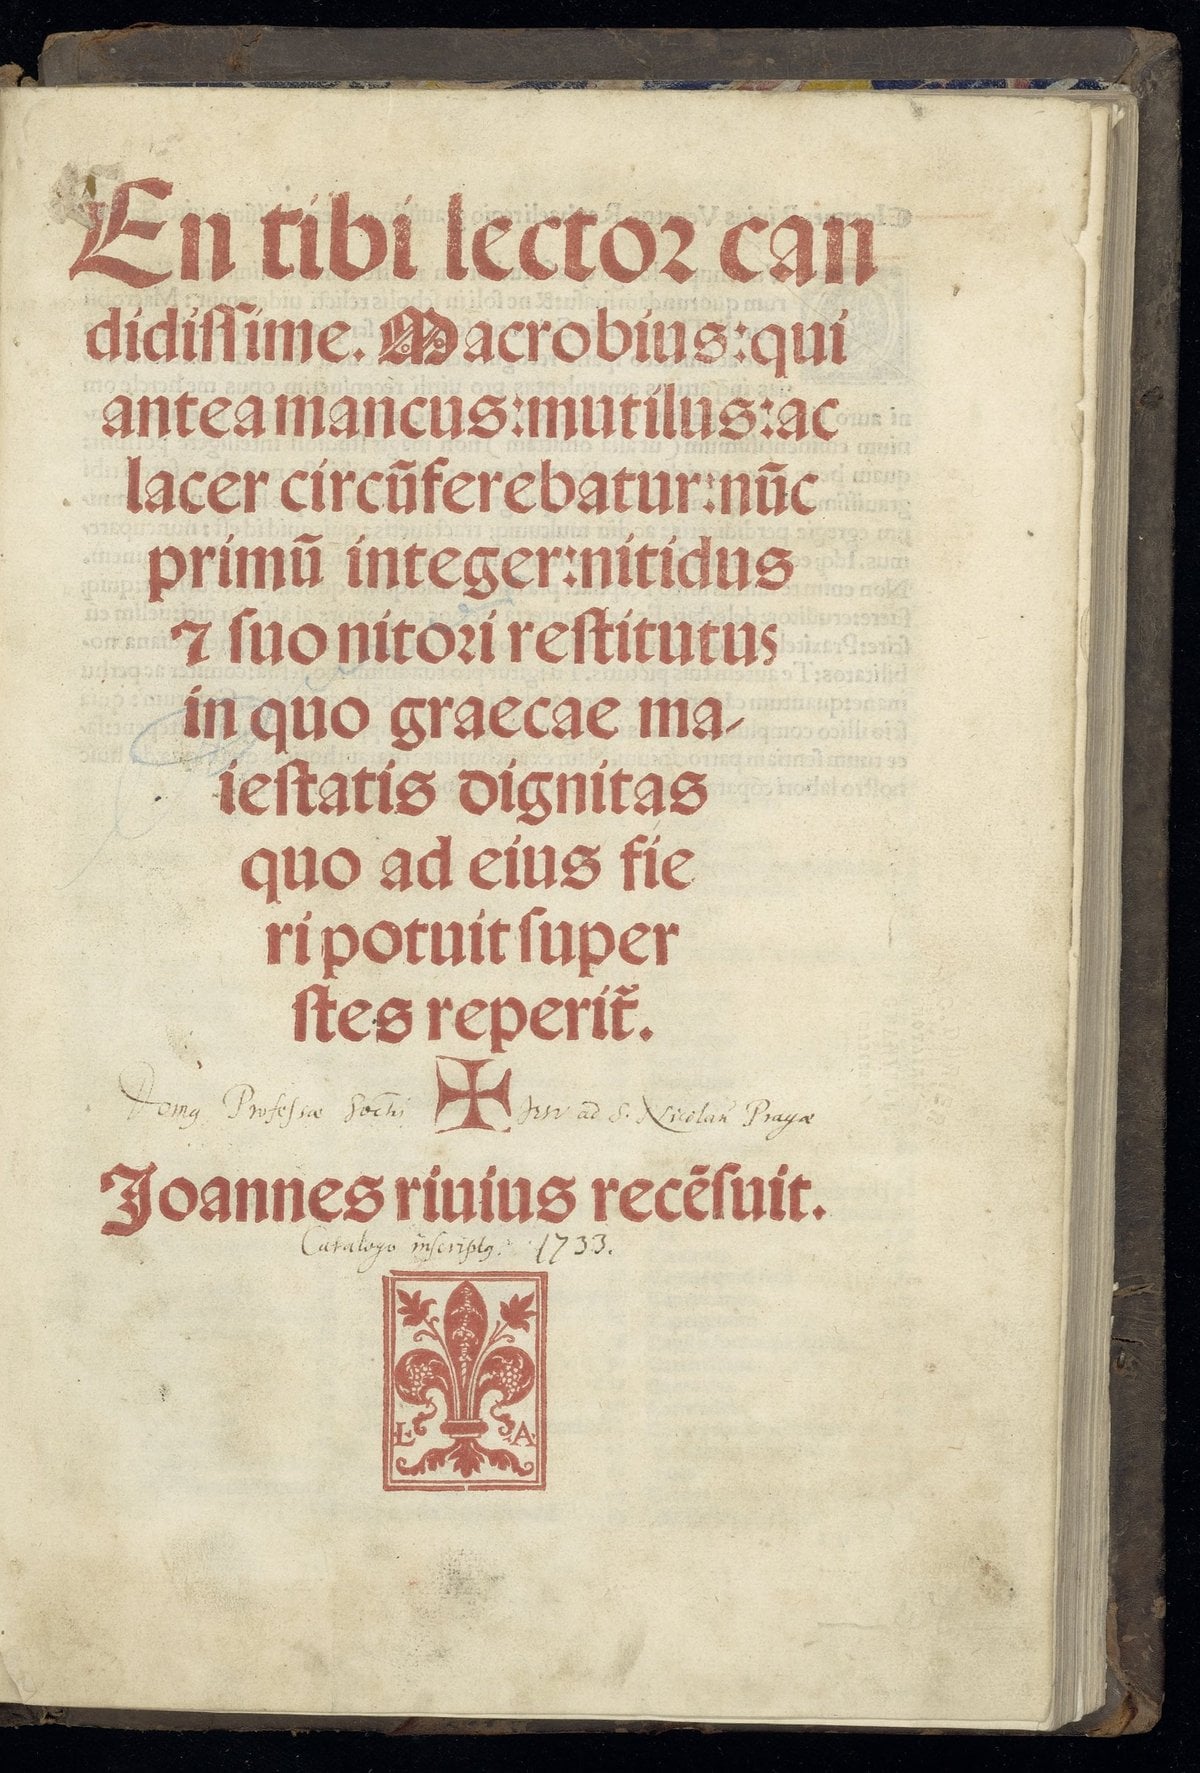 En tibi lector can
didissime. Macrobius: qui
antea mancus: mutilus: ac
lacer circūferebatur: nūc
primū integer: nitidus
⁊ suo nitori restitutus
in quo graecae ma-
iestatis dignitas
quo ad eius fie
ri potuit super
stes reperit̃.
Domꝯ Professæ Soctis Jesu ad S. Nicolaū Pragæ
Joannes riuius recēsuit.
Catalogo inscriptꝯ. 1733.
L A